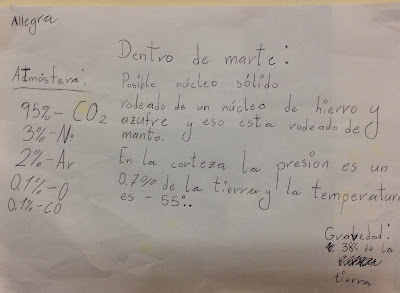 Allegra
Dentro de marte:
Atmósfera:
95%-CO2
3%-N
2%-Ar
0.1%-O
0.1%-CO
Posible núcleo sólido
rodeado de un núcleo de hierro y
azufre y eso esta rodeado de
manto.
En la corteza la presion es un
0.7% de la tierra y la temperatura
es -55°.
Gravedad:
38% de la
tierra